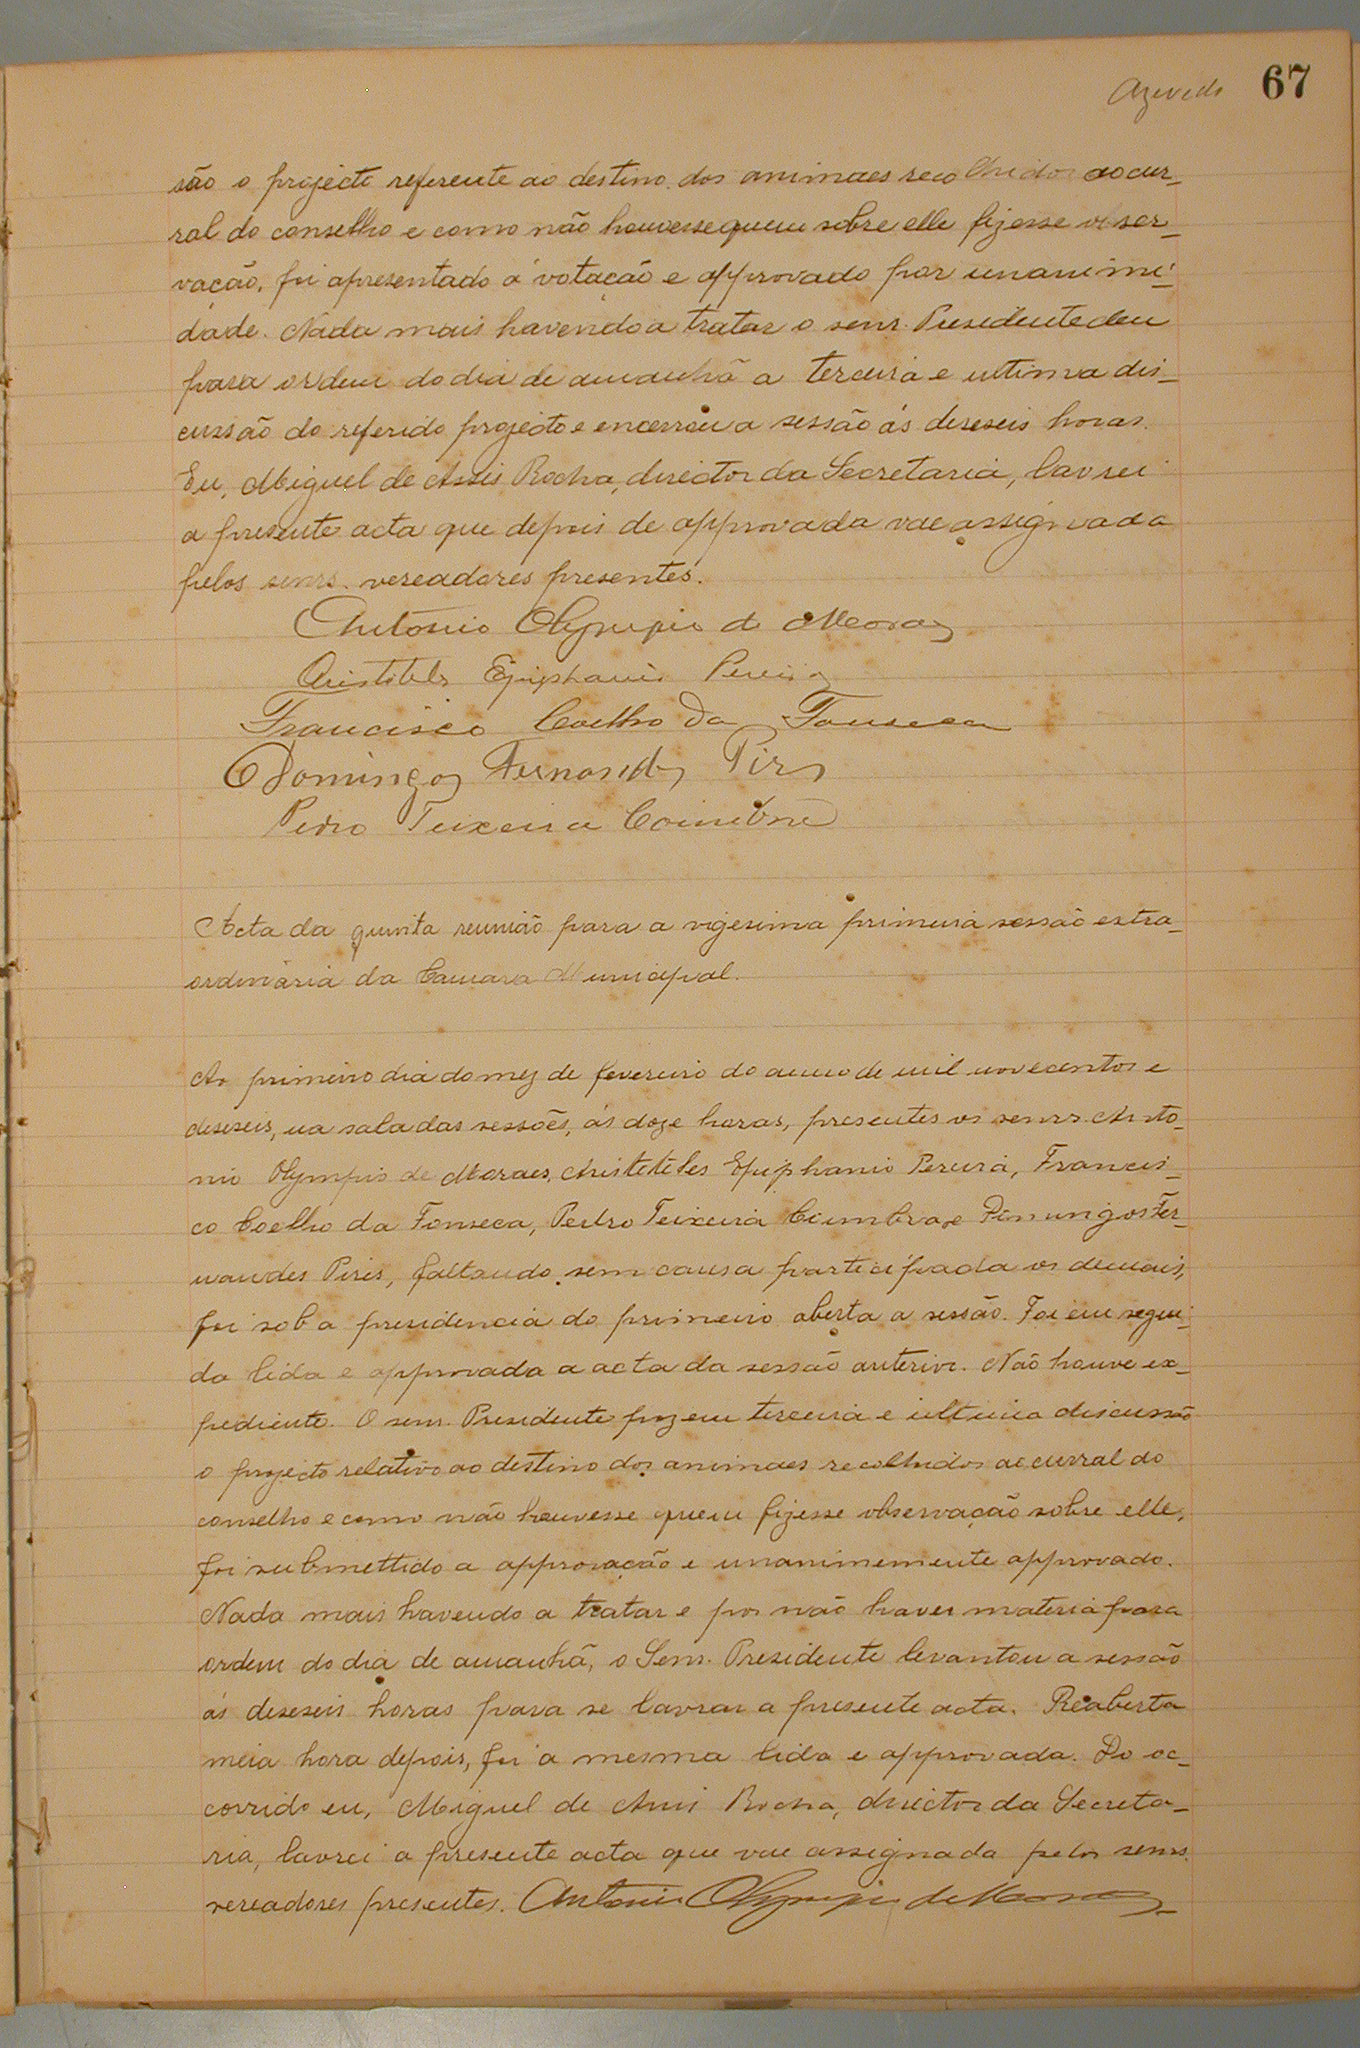 Azevedo 67
são o projecto referente ao destino dos animaes recolhidos ao cur-
ral do conselho e como não houvesse quem sobre elle fizesse obser-
vação, foi apresentado á votação e approvado por unanimi-
dade. Nada mais havendo a tratar o senr. Presidente deu
para ordem do dia de amanhã a terceira e ultima dis-
cussão do referido projecto e encerrou a sessão ás deseseis horas.
Eu, Miguel de Assis Rocha, director da Secretaria, lavrei
a presente acta que depois de approvada vae assignada
pelos senrs. vereadores presentes.
Antonio Olympio de Moraes
Aristoteles Epiphanio Pereira
Francisco Coelho da Fonseca
Domingos Fernandes Pires
Pedro Teixeira Coimbra
Acta da quinta reunião para a vigesima primeira sessão extra-
ordinaria da Camara Municipal.
Ao primeiro dia do mez de fevereiro do anno de mil novecentos e
deseseis, na sala das sessões, ás doze horas, presentes os senrs. Anto-
nio Olympio de Moraes, Aristoteles Epiphanio Pereira, Francis-
co Coelho da Fonseca, Pedro Teixeira Coimbra e Domingos Fer-
nandes Pires, faltando sem causa participada os demais,
foi sob a presidencia do primeiro aberta a sessão. Foi em segui-
da lida e approvada a acta da sessão anterior. Não houve ex-
pediente. O senr. Presidente poz em terceira e ultima discussão
o projecto relativo ao destino dos animaes recolhidos ao curral do
conselho e como não houvesse quem fizesse observação sobre elle,
foi submettido a approvação e unanimemente approvado.
Nada mais havendo a tratar e por não haver materia para
ordem do dia de amanhã, o Senr. Presidente levantou a sessão
ás deseseis horas para se lavrar a presente acta. Reaberta
meia hora depois, foi a mesma lida e approvada. Do oc-
corrido eu, Miguel de Assis Rocha, director da Secreta-
ria, lavrei a presente acta que vae assignada pelos senrs.
vereadores presentes. Antonio Olympio de Moraes